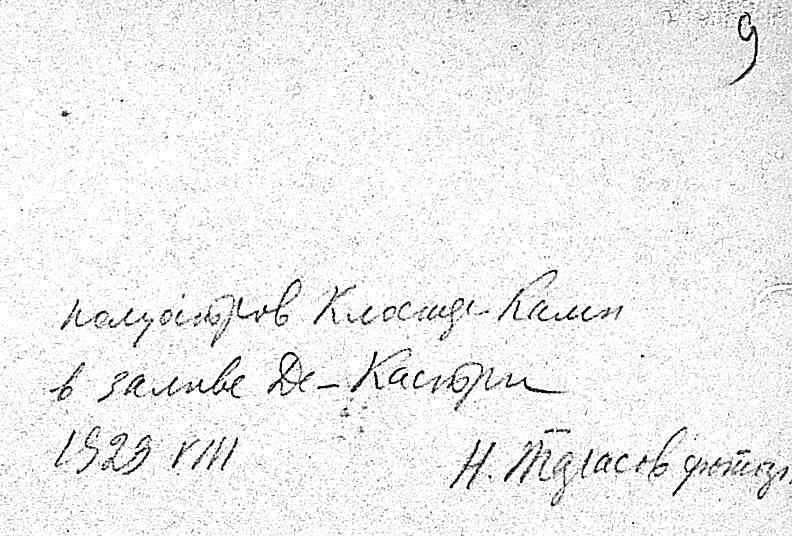 9
полуостров Клостер-Камп
в заливе Де-Кастри
1929 VIII
Н. Тарасов